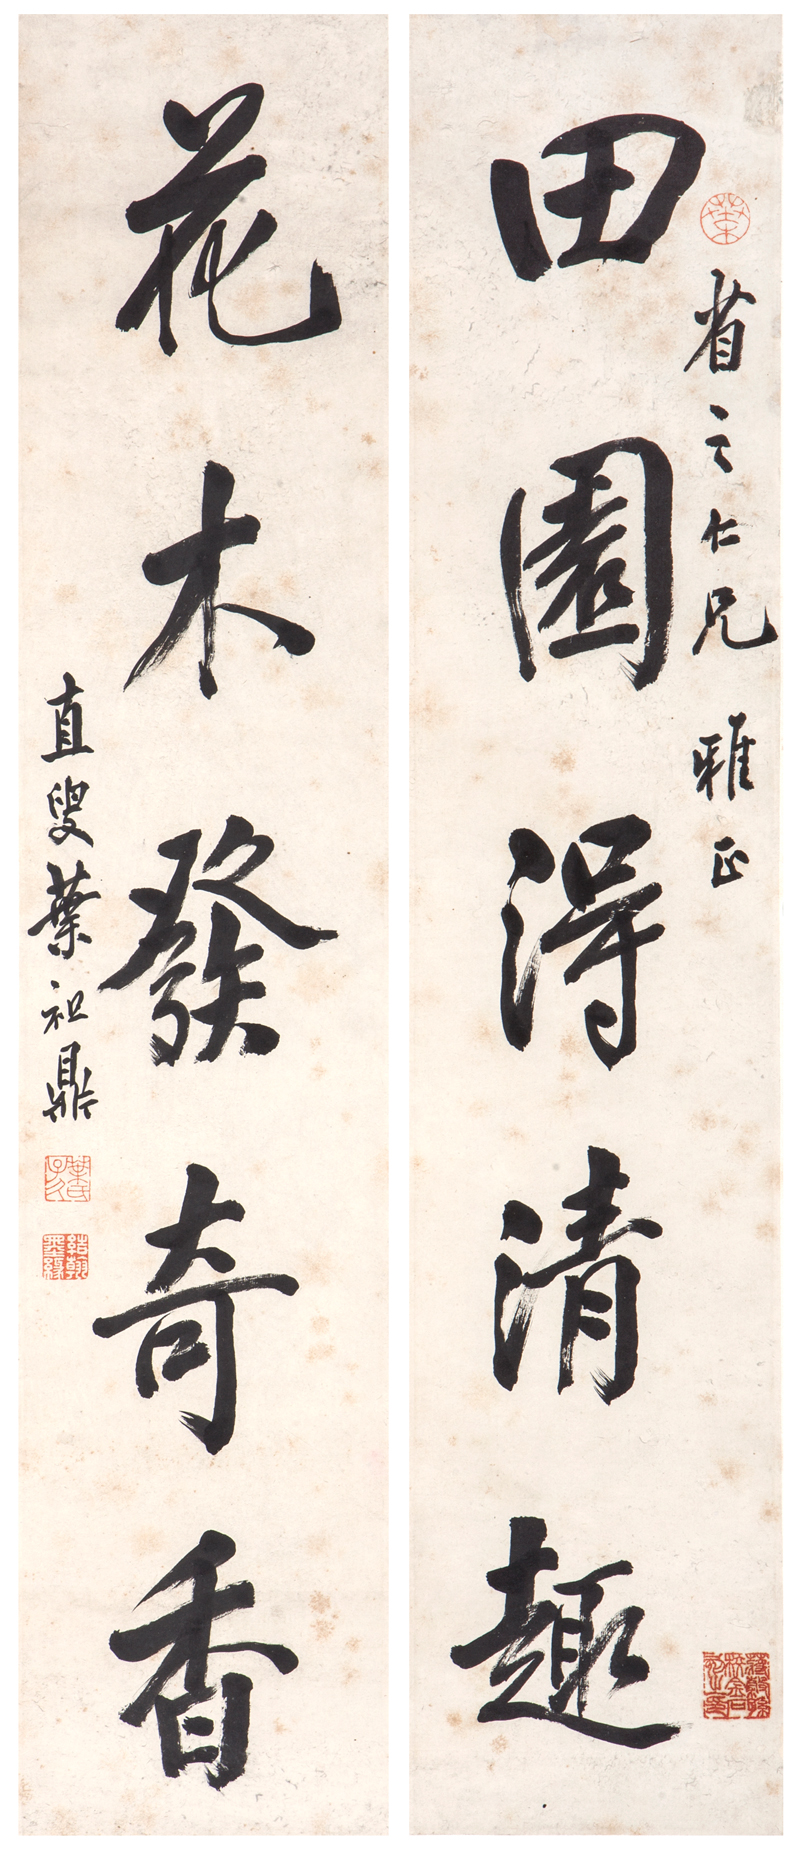 田園得清趣
省之仁兄 雅正
花木發奇香
直叟葉祖鼎